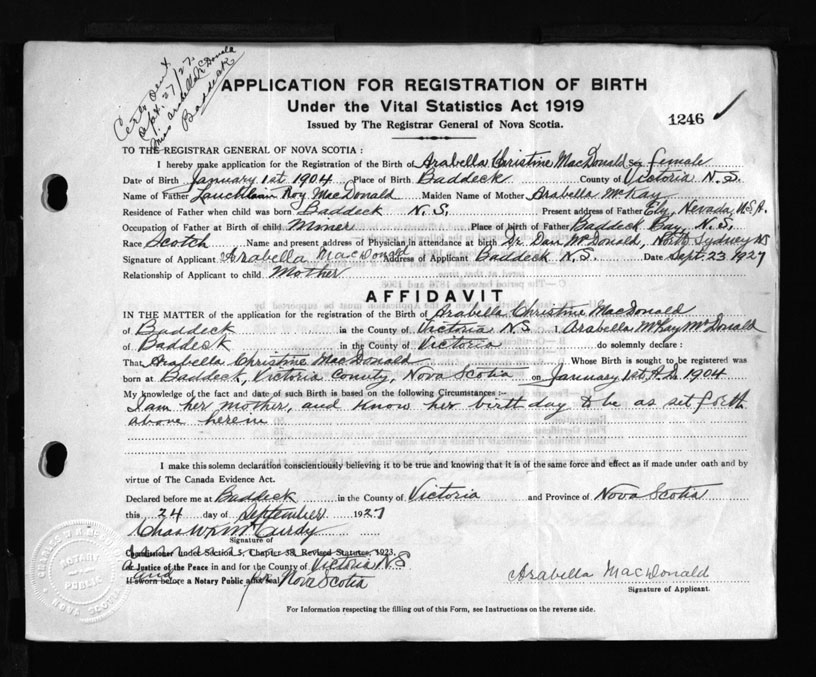 Certf. sent
Sept. 27/27.
Miss Arabella McDonald
Baddeck
APPLICATION FOR REGISTRATION OF BIRTH
Under the Vital Statistics Act 1919
Issued by The Registrar General of Nova Scotia.
1246
TO THE REGISTRAR GENERAL OF NOVA SCOTIA :
I hereby make application for the Registration of the Birth of Arabella Christine MacDonald sex female
Date of Birth January 1st 1904 Place of Birth Baddeck County of Victoria N.S.
Name of Father Lauchlain Roy MacDonald Maiden Name of Mother Arabella McKay
Residence of Father when child was born Baddeck N.S. Present address of Father Ely, Nevada, U.S.A.
Occupation of Father at Birth of child Miner Place of birth of Father Baddeck Bay, N.S.
Race Scotch Name and present address of Physician in attendance at birth Dr. Dan McDonald, North Sydney NS
Signature of Applicant Arabella MacDonald Address of Applicant Baddeck N.S. Date Sept. 23 1927
Relationship of Applicant to child Mother
AFFIDAVIT
IN THE MATTER of the application for the registration of the Birth of Arabella Christine MacDonald
of Baddeck in the County of Victoria N.S I, Arabella McKay McDonald
of Baddeck in the County of Victoria do solemnly declare :
That Arabella Christine MacDonald Whose Birth is sought to be registered was
born at Baddeck, Victoria County, Nova Scotia on January 1st A.D. 1904
My knowledge of the fact and date of such Birth is based on the following Circumstances :-
I am her mother, and know her birth day to be as set forth
above herein
I make this solemn declaration conscientiously believing it to be true and knowing that it is of the same force and effect as if made under oath and by
virtue of The Canada Evidence Act.
Declared before me at Baddeck in the County of Victoria and Province of Nova Scotia
this 24 day of September 1927
Chas W K McCurdy
Signature of
Commissioner under Section 5, Chapter 38, Revised Statutes, 1923.
or Justice of the Peace in and for the County of Victoria N.S
and
If sworn before a Notary Public affix seal. for Nova Scotia
Arabella MacDonald
Signature of Applicant.
For Information respecting the filling out of this Form, see Instructions on the reverse side.
NOTARY
PUBLIC
NOVA SCOTIA